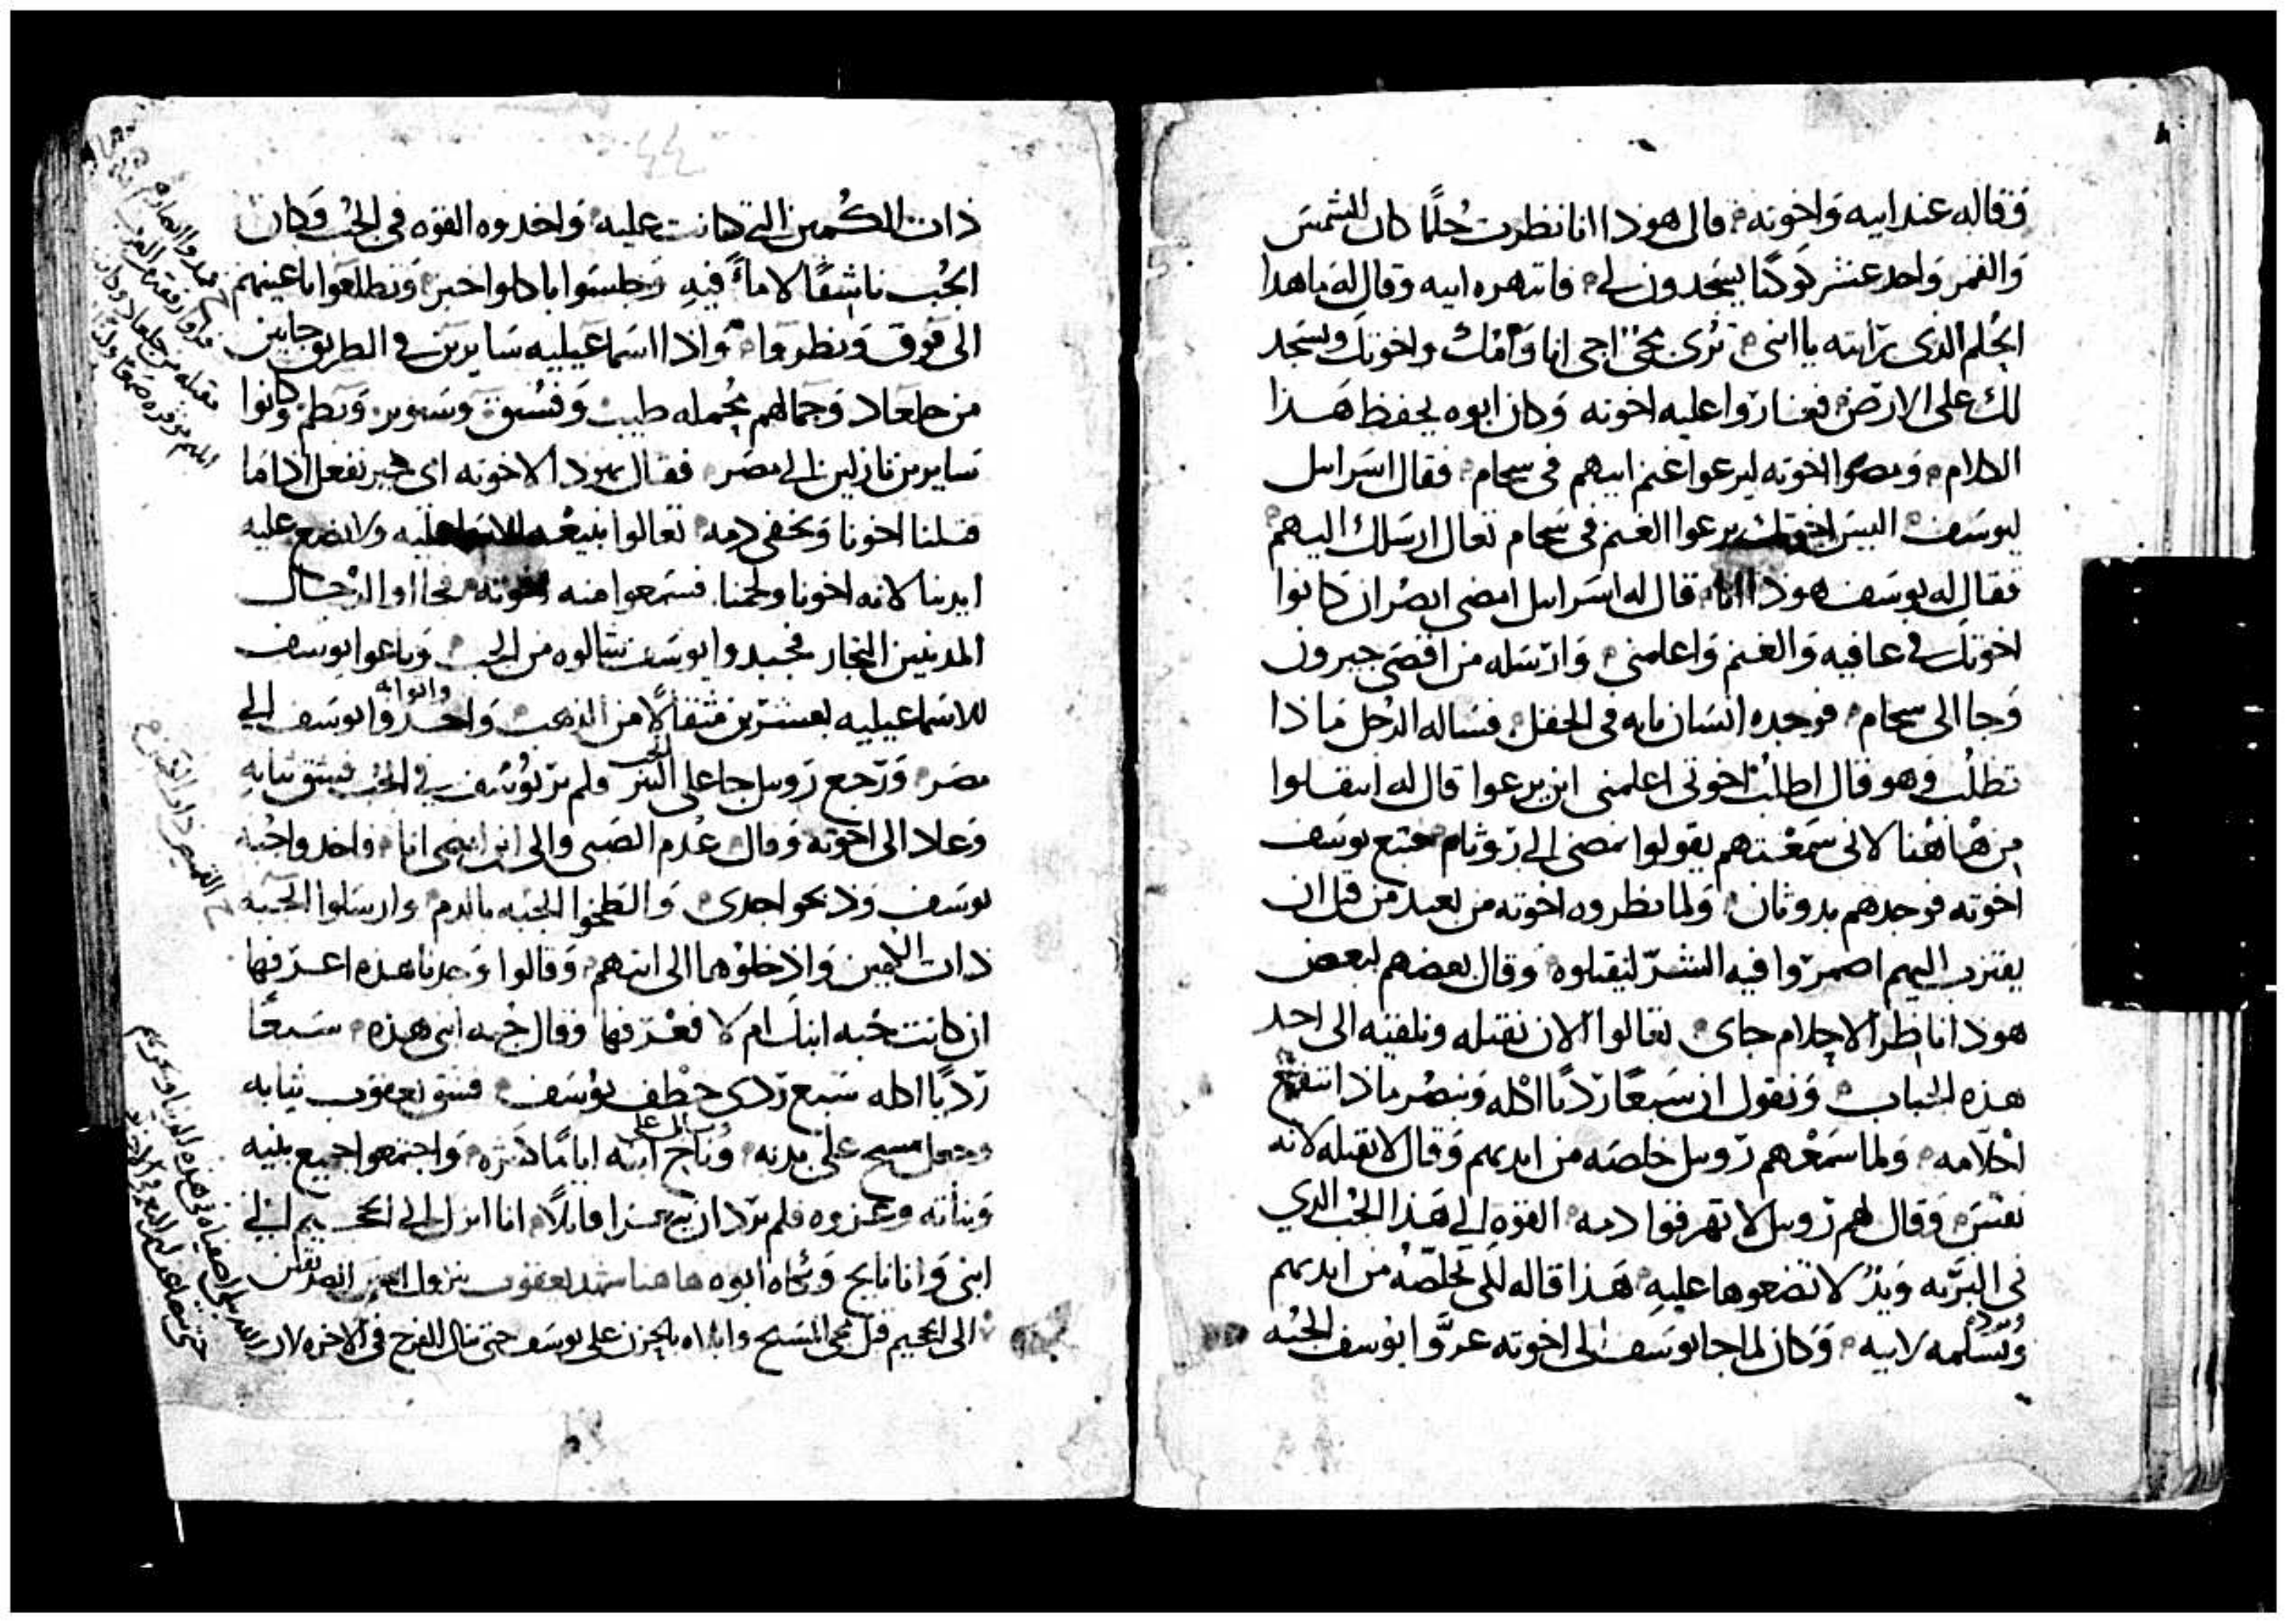 وقاله عند ابيه واخوته قال هوذا انا نظرت حُلمًا كان الشمس
والقمر واحد عشر كوكبًا يسجدون لي فانتهره ابيه وقال له ما هدا
الحُلم الدى رايته يا ابني تُرى نجي انا وامك واخوتك ونسجد
لك على الارض فغاروا عليه اخوته وكان ابوه يحفظ هذا
الكلام ومضوا اخوته ليرعوا غنم ابيهم فى سحام فقال اسرايل
ليوسف اليس اخوتك يرعوا الغنم فى سحام تعال ارسلك اليهم
فقال له يوسف هوذا انا قال له اسرايل امضى ابصُر ان كانوا
اخوتك في عافيه والغنم واعلمني وارسله من اقصى حبرون
وجا الى سحام فوجده انسان تايه فى الحقل فساله الرجل ماذا
تطلُب وهو قال اطلُب اخوتى اعلمنى اين يرعوا قال له انتقلوا
من هاهُنا لانى سمعتهم يقولوا نمضى الى روثام فتبع يوسف
اخوته فوجدهم بدوثان ولما نظروه اخوته من بعيد من قبل ان
يقترب اليهم اضمروا فيه الشرّ ليقتلوه وقال بعضهم لبعض
هوذا ناظر الاحلام جاى تعالوا الان نقتله ونلقيه الى احد
هذه الجباب ونقول ان سبعًا رديًا اكله ونبصُر ماذا تنفع
احلامه ولما سمعهم روبيل خلصه من ايديهم وقال لا نقتله لانه
نفس وقال لهم روبيل لا تهرقوا دمه القوه الى هذا الجُب الدي
في البريّه ويدُ لا تضعوها عليه هذا قاله لكى يخلصه من ايديهم
ويسلمه لابيه وكان لما جا يوسف الى اخوته عرّوا يوسف الجُبه
ذات الكُمين التى كانت عليه واخدوه القوه فى الجُب وكان
الجُب ناشفًا لا ماءً فيه وجلسوا ياكلوا خبز وتطلعوا باعينهم
الى فوق ونظروا واذا اسماعيليه سايرين في الطريق جايين
من جلعاد وجمالهم مُحمله طيب وفُستق وصنوبر وبطم وكانوا
سايرين نازلين الى مصر فقال يهوذا لاخوته اى خير نفعل اذا ما
قتلنا اخونا ونخفى دمه تعالوا نبيعُه للاسماعليه ولا نضع عليه
ايدينا لانه اخونا ولحمنا فسمعوا منه اخوته فجااوا الرجال
المدينين التجار فجبدوا يوسف شالوه من الجب وباعوا يوسف
للاسماعيليه بعشرين مثقالًا من الذهب واخدوا يوسف الى
مصر ورجع روبيل جا على البير ولم يرَ يوسف في الجُب فشق ثيابه
وعاد الى اخوته وقال عُدم الصبى والى اين امضى انا واخدوا جُبة
يوسف وذبحوا جدى والطخوا الجُبه بالدم وارسلوا الجُبه
ذات الكمين وادخلوُها الى ابيهم وقالوا وجدنا هذه اعرفها
ان كانت جُبه ابنك ام لا فعرفها وقال جُبه ابنى هذه سبعًا
رديًا اكله سبع ردى خطف يوسف فشق يعقوب ثيابه
وجعل مسح على بدنه وناح ابنه ايامًا كثيره واجتمعوا جميع بنيه
وبناته وعزوه فلم يرد ان يتعزا قايلًا انا انزل الى الجحيم الى
ابنى وانا نايح وبكاه ابوه هاهنا شهد يعقوب بنزول
الى الجحيم قبل مجى المسيح وابداه بالحزن على يوسف حتى ينال الفرح فى الاخره لان